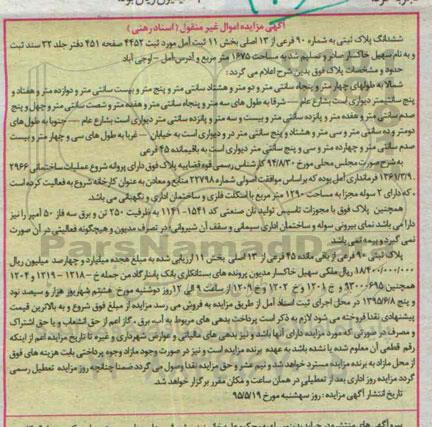 آگهی مزایده اموال غیر منقول (اسناد رهنی)
ششدانگ پلاک ثبتی به شماره ۹۰ فرعی از ۱۳ اصلی بخش ۱۱ ثبت آمل مورد ثبت ۴۴۵۲ صفحه ۴۵۱ دفتر جلد ۳۲ سند ثبت
و به نام سهیل خاکسار صادر و تسلیم شد به مساحت ۱۶۷۵ متر مربع و آدرس آمل - اوجی آباد
حدود و مشخصات پلاک فوق بدین شرح اعلامی گردد:
شمالا به طولهای چهار متر و پنجاه سانتی متر و دو متر و هشتاد سانتی متر و پنج متر و بیست سانتی متر و دوازده متر و هفتاد و
پنج سانتیمتر دیواری است بشارع عام - شرقا به طول های سه متر و پنجاه سانتی متر و هفده متر و شصت سانتی متر و چهل و پنج
صدم سانتی متر و هفده متر و پانزده سانتی متر و بیست و سه متر و پانزده سانتی متر دیواری است بشارع عام - جنوبا به طول های
دو متر و ده سانتی متر و سی متر و هشتاد و پنج سانتی متر در و دیواری است به خیابان - غربا به طول های سی و چهار متر و بیست
صدم سانتی متر و چهارده متر و سی و پنج سانتی متر و دیواری است به باقیمانده ۴۵ فرعی
به شرح صورت مجلس محلی مورخ ۹۴/۸/۳۰ کارشناس رسمی قوه قضاییه پلاک فوق دارای پروانه شروع عملیات ساختمانی ۲۹۶۶
۱۳۶۱/۳/۹ فرمانداری آمل بوده که براساس موافقت اصولی شماره ۲۲۷۹۸ منابع و معادن به عنوان کارخانه شروع به فعالیت کرده است
که دارای ۲ سوله مجزا به مساحت ۱۲۹۰ متر مربع با اسکلت فلزی و ساختمان اداری و نگهبانی می باشد
همچنین پلاک فوق با مجوزات تاسیس تولید نان صنعتی کد ۱۵۴۱-۱۱۴۱ به ظرفیت ۲۵۰ تن و برق سه فاز ۵۰ آمپر را نیز
دارا می باشد نمای بیرونی سوله و ساختمان اداری سیمانی و سقف آن شیروانی در تصرف مدیون و هیچگونه فعالیتی در آن صورت
نمی گیرد و بیمه نمی باشد
پلاک ثبتی ۹۰ فرعی از باقی مانده ۴۵ فرعی از ۱۳ اصلی بخش ۱۱ ارزیابی شده به مبلغ هجده میلیارد و چهارصد میلیون ریال
۱۸/۴۰۰/۰۰۰/۰۰۰ ریال ملکی سهیل خاکسار مدیون پرونده های بستانکاری بانک پاسارگاد من جمله خ - ۱۲۱۸ - ۱۲۱۹ و ۱۲۰۴
همچنین ۹۳۰۰۶۹۵ و خ ۱۲۰۱ و خ ۱۲۰۲ و خ ۱۲۰۹ از ساعت ۹ الی ۱۲ روز دوشنبه مورخ هشتم شهریور هزار و سیصد نود
و پنج ۱۳۹۵/۶/۸ در محل اجرای ثبت اسناد آمل از طریق مزایده به فروش می رسد مزایده از مبلغ فوق شروع و به بالاترین قیمت
پیشنهادی نقدا فروخته می شود لازم به ذکر است پرداخت بدهی های مربوطه به آب، برق، گاز اعم از حق انشعاب و یا حق اشتراک
و مصرف در صورتی که مورد مزایده دارای آنها باشد و نیز بدهی های مالیاتی و عوارض شهرداری و غیره تا تاریخ مزایده اعم از اینکه
رقم قطعی آن معلوم شده یا نشده باشد به عهده برنده مزایده است و نیز در صورت وجود مازاد وجوه پرداختی بابت هزینه های فوق
از محل مازاد به برنده مزایده مسترد خواهد شد و نیم عشر و حق مزایده نقدا وصول می گردد ضمنا چنانچه روز مزایده تعطیل رسمی
گردد مزایده روز اداری بعد از تعطیلی در همان ساعت و مکان مقرر برگزار خواهد شد.
تاریخ انتشار آگهی مزایده: روز سه شنبه مورخ ۹۵/۵/۱۹
ParsNamadData